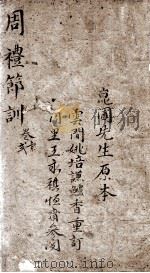 周禮節訓
崑圃先生原本
雲間姚培謙鱸香重訂
同里王永祺恆齋參閱